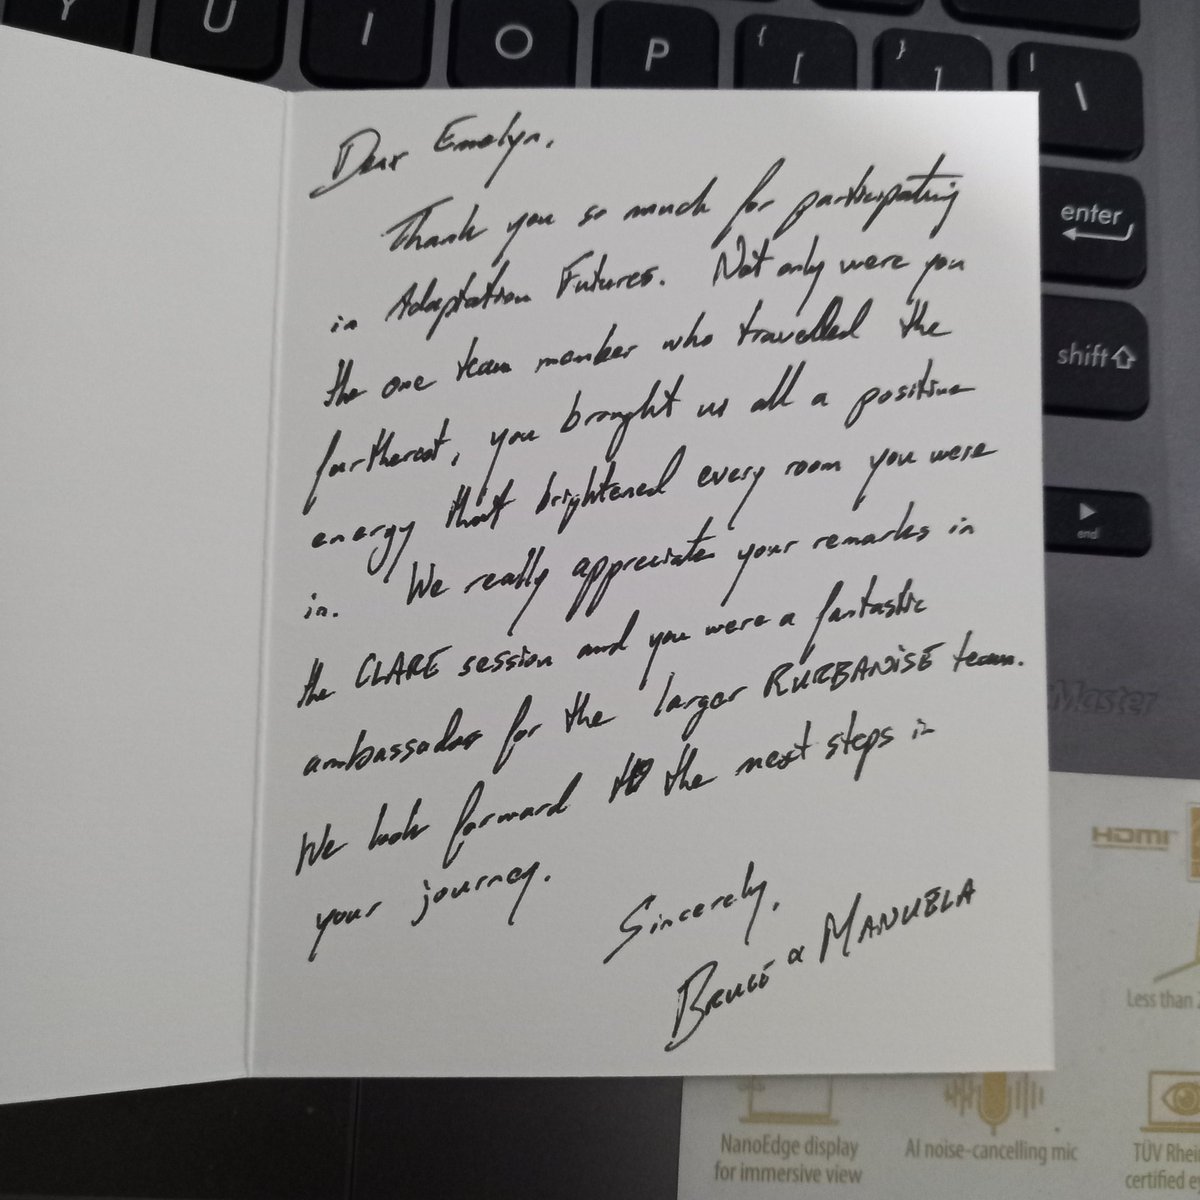 Y U I O P { [ } ] | \
enter
shift
end
Dear Emelyn,
Thank you so much for participating
in Adaptation Futures. Not only were you
the one team member who travelled the
farthest, you brought us all a positive
energy that brightened every room you were
in. We really appreciate your remarks in
the CLARE session and you were a fantastic
ambassador for the larger RURBANISE team.
We look forward to the next steps in
your journey.
Sincerely,
BRUCE & MANUELA
Master
HDMI
Less than
NanoEdge display
for immersive view
AI noise-cancelling mic
TÜV Rhei
certified e